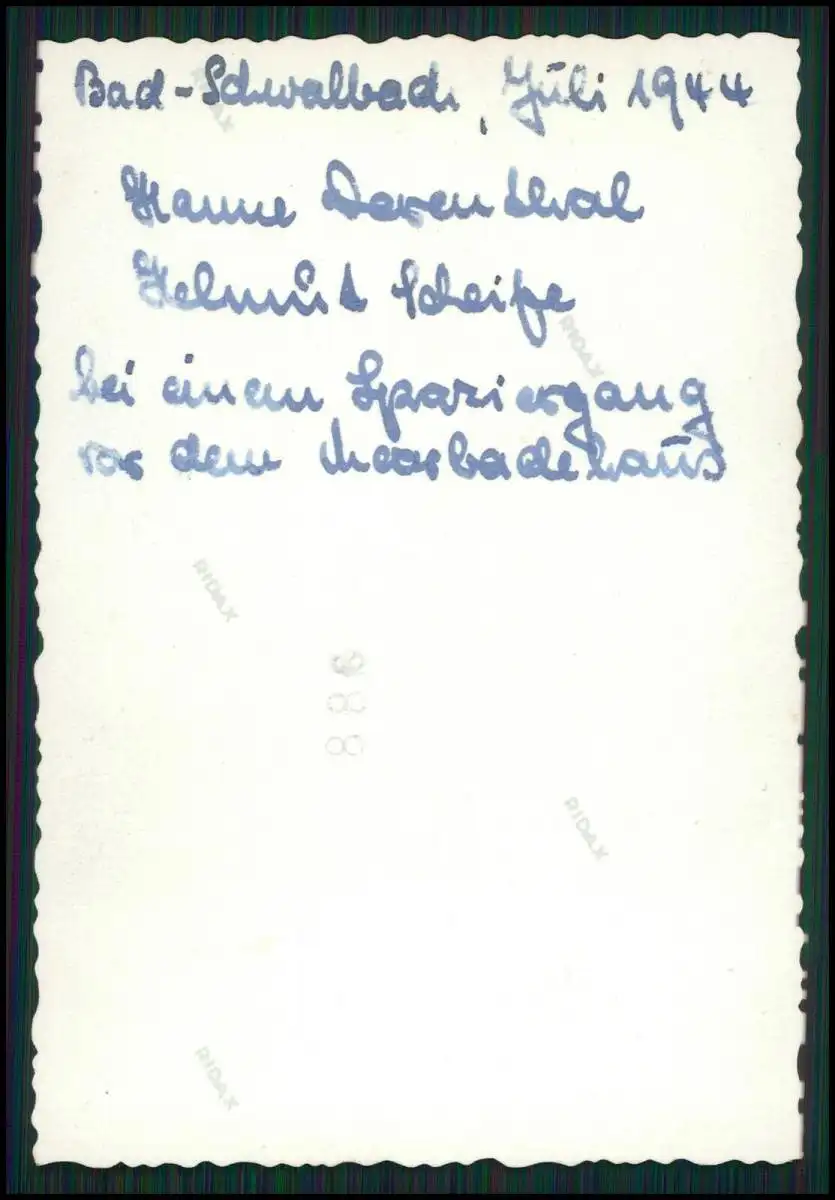 Bad-Schwalbach, Juli 1944
Hanne Derenthal
Helmut Scheipe
bei einem Spaziergang
vor dem Moorbadehaus
RIDAX
RIDAX
886
RIDAX
RIDAX